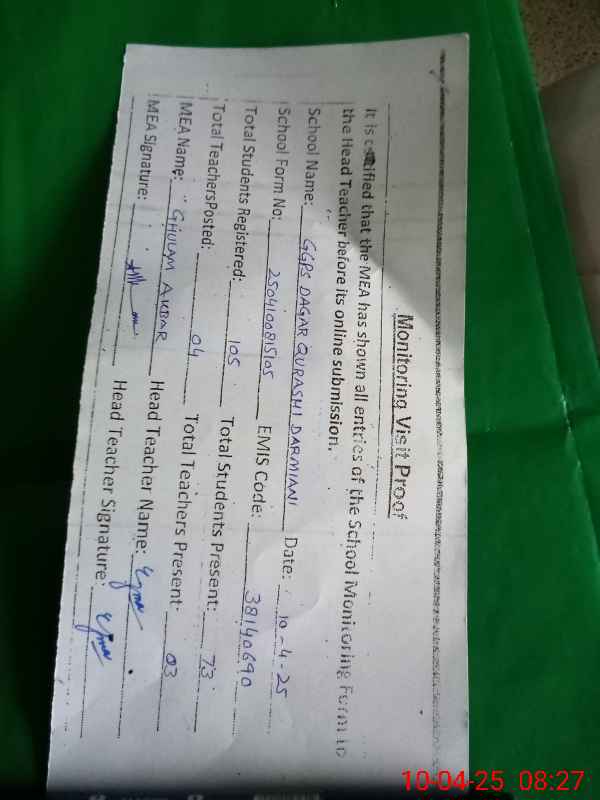 Monitoring Visit Proof
It is certified that the MEA has shown all entries of the School Monitoring Form to
the Head Teacher before its online submission.
School Name: GGPS DAGAR QURASHI DARMIANI Date: 10-4-25
School Form No: 2504100815105 EMIS Code: 38140690
Total Students Registered: 105 Total Students Present: 73
Total TeachersPosted: 04 Total Teachers Present: 03
MEA Name: GHULAM AKBAR Head Teacher Name:
MEA Signature: Head Teacher Signature:
10-04-25 08:27